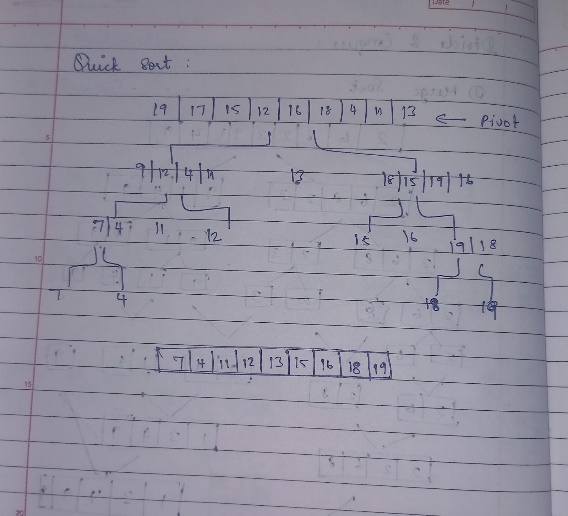 Date
Quick Sort :
19 | 17 | 15 | 12 | 16 | 18 | 4 | 11 | 13 ← Pivot
9 | 12 | 4 | 11 13 18 | 15 | 19 | 16
7 | 4 11 12 15 16 19 | 18
7 4 18 19
7 | 4 | 11 | 12 | 13 | 15 | 16 | 18 | 19
5
10
15
20